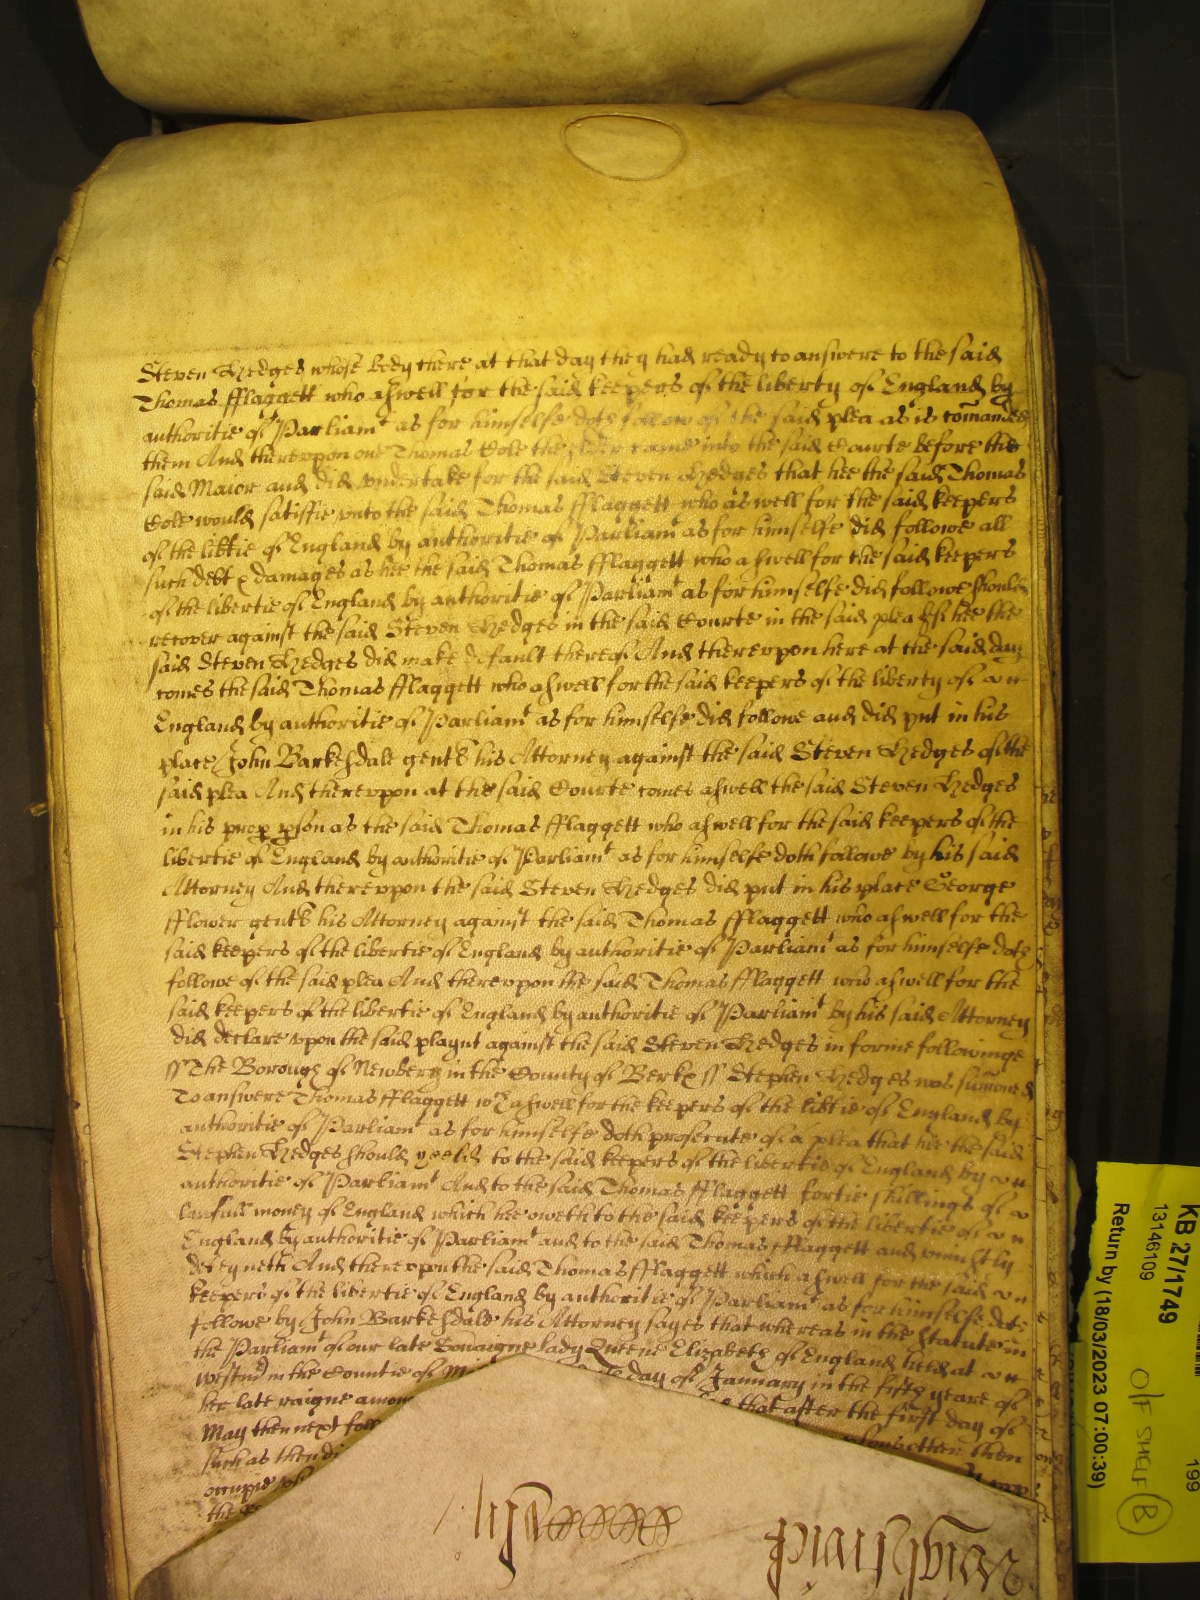 Steven Hedges whose body there at that day they had ready to answere to the said
Thomas fflaggett who aswell for the said keepers of the liberty of England by
authoritie of Parliamt as for himselfe doth follow of the said plea as is comanded
them And therevpon one Thomas Cole the came into the said Courte before the
said Maior and did vndertake for the said Steven Hedges that hee the said Thomas
Cole would satisfie vnto the said Thomas fflaggett who as well for the said keepers
of the libtie of England by authoritie of Parliamt as for himselfe did followe all
such debt & damages as hee the said Thomas fflaggett who aswell for the said keepers
of the libertie of England by authoritie of Parliamt as for himselfe did followe should
recover against the said Steven Hedges in the said Courte in the said plea if hee the
said Steven Hedges did make default thereof And therevpon here at the said day
comes the said Thomas fflaggett who aswell for the said keepers of the liberty of
England by authoritie of Parliamt as for himselfe did followe and did put in his
place John Barkesdale gent his Attorney against the said Steven Hedges of the
said plea And therevpon at the said Courte comes aswell the said Steven Hedges
in his prop pson as the said Thomas fflaggett who aswell for the said keepers of the
libertie of England by authoritie of Parliamt as for himselfe doth followe by his said
Attorney And therevppon the said Steven Hedges did put in his place George
fflower gent his Attorney against the said Thomas fflaggett who aswell for the
said keepers of the libertie of England by authoritie of Parliamt as for himselfe doth
followe of the said plea And therevpon the said Thomas fflaggett who aswell for the
said keepers of the libertie of England by authoritie of Parliamt by his said Attorney
did declare vpon the said playnt against the said Steven Hedges in forme followinge
ss The Borough of Newbery in the County of Berk ss Stephen Hedges was sumoned
To answere Thomas fflaggett wch aswell for the keepers of the libtie of England by
authoritie of Parliamt as for himselfe doth prosecute of a plea that hee the said
Stephen Hedges should yeeld to the said keepers of the libertie of England by
authoritie of Parliamt And to the said Thomas fflaggett fortie shillings of
lawfull money of England which hee oweth to the said keepers of the libertie of
England by authoritie of Parliamt and to the said Thomas fflaggett and vniustly
deteyneth And therevpon the said Thomas fflaggett which aswell for the said
keepers of the libertie of England by authoritie of Parliamt as for himselfe doth
followe by John Barkesdale his Attorney sayes that whereas in the Statute in
the Parliamt of our late Souaigne lady Queene Elizabeth of England held at
westmr in the Countie of day of January in the fifth yeare of
her late raigne that after the first day of
May then next then
such as then
occupie
the
KB 27/1749
13146109
Return by (18/03/2023 07:00:39)
199
O/F SHELF B